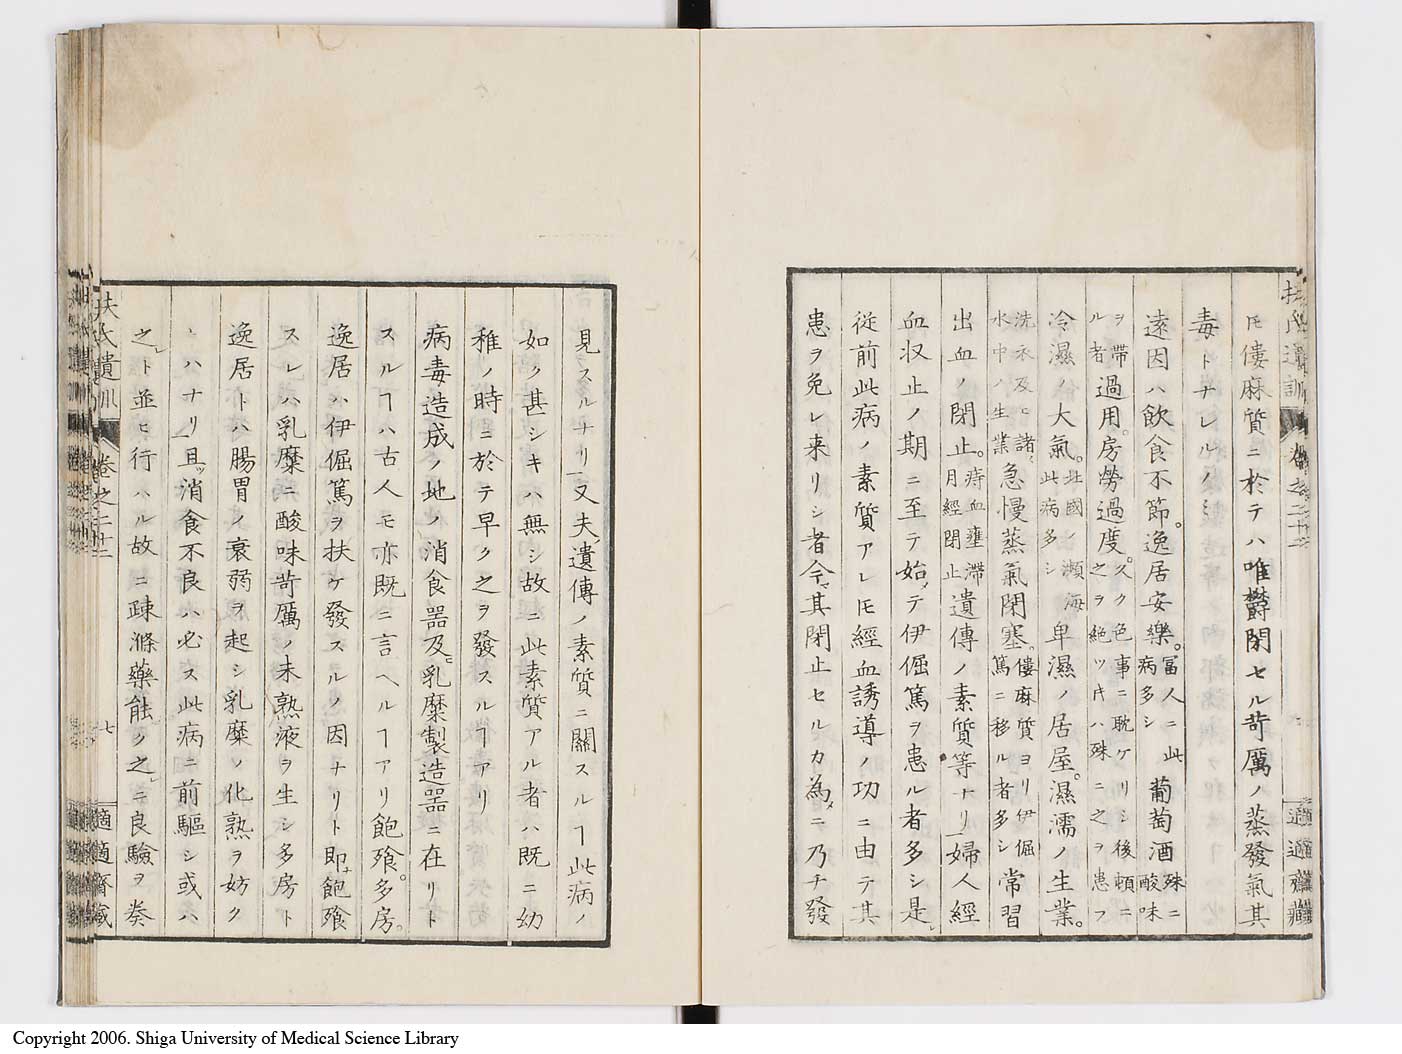 扶氏遺訓 卷之二十三
適適齋藏
𪜈僂麻質ニ於テハ唯欝閉セル苛厲ノ蒸發氣其
毒トナレルノミ
遠因ハ飮食不節。逸居安樂。富人ニ此病多シ葡萄酒殊ニ酸味
ヲ帶ル者過用。房勞過度。久ク色事ニ耽ケリシ後頓ニ之ヲ絶ツ片ハ殊ニ之ヲ患フ
冷濕ノ大氣。北國ノ瀕海此病多シ卑濕ノ居屋。濕濡ノ生業。
洗衣及ヒ諸水中ハ生業急慢蒸氣閉塞。僂麻質ヨリ伊倔篤ニ移ル者多シ常習
出血ノ閉止。痔血壅滯月經閉止遺傳ノ素質等ナリ婦人經
血収止ノ期ニ至テ始テ伊倔篤ヲ患ル者多シ是レ
從前此病ノ素質アレ𪜈經血誘導ノ功ニ由テ其
患ヲ免レ来リシ者今其閉止セルカ為メニ乃チ發
見スルナリ又夫遺傳ノ素質ニ關スルヿ此病ノ
如ク甚シキハ無シ故ニ此素質アル者ハ既ニ幼
稚ノ時ニ於テ早ク之ヲ發スルヿアリ
病毒造成ノ地ノ消食器及ヒ乳糜製造器ニ在リト
スルヿハ古人モ亦既ニ言ヘルヿアリ飽飱。多房。
逸居ハ伊倔篤ヲ扶ケ發スルノ因ナリト即チ飽飱
スレハ乳糜ニ酸味苛厲ノ未熟液ヲ生シ多房ト
逸居トハ腸胃ノ衰弱ヲ起シ乳糜ノ化熟ヲ妨ク
レハナリ且ツ消食不良ハ必ス此病ニ前驅シ或ハ
之レト並ヒ行ハル故ニ疎滌藥能ク之レニ良驗ヲ奏
扶氏遺訓 卷之二十三 七
適適齋藏
Copyright 2006. Shiga University of Medical Science Library